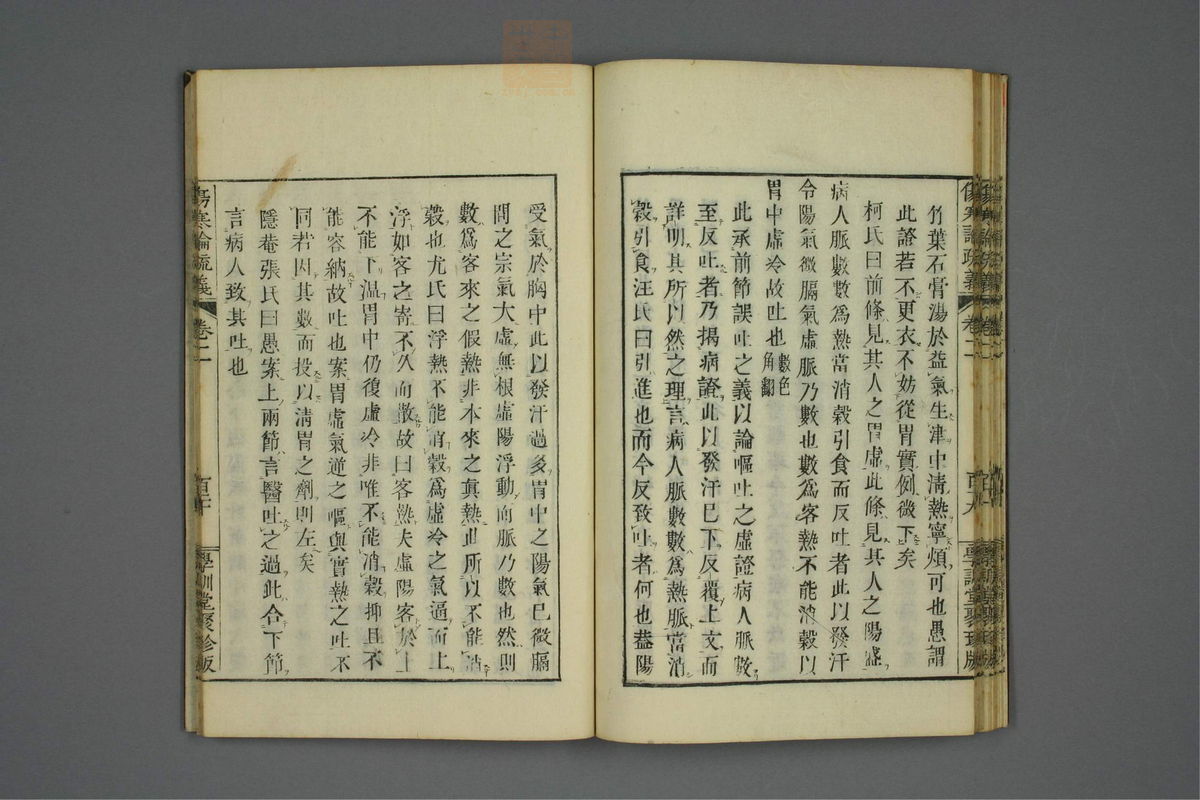 竹葉石膏湯於益氣生津中淸熱寧煩可也愚謂
此證若不更衣不妨從胃實例微下矣
柯氏曰前條見其人之胃虛此條見其人之陽盛
病人脈數數爲熱當消穀引食而反吐者此以發汗
令陽氣微膈氣虛脈乃數也數爲客熱不能消穀以
胃中虛冷故吐也數色角翻
此承前節誤吐之義以論嘔吐之虛證病人脈數
至反吐者乃揭病證此以發汗已下反覆上文而
詳明其所以然之理言病人脈數數爲熱脈當消
穀引食汪氏曰引進也而今反致吐者何也蓋陽
受氣於胸中此以發汗過多胃中之陽氣已微膈
間之宗氣大虛無根虛陽浮動而脈乃數也然則
數爲客來之假熱非本來之眞熱此所以不能消
穀也尤氏曰浮熱不能消穀爲虛冷之氣逼而上
浮如客之寄不久而散故曰客熱夫虛陽客於上
不能下溫胃中仍復虛冷非唯不能消穀抑且不
能容納故吐也案胃虛氣逆之嘔與實熱之吐不
同若因其數而投以淸胃之劑則左矣
隱菴張氏曰愚案上兩節言醫吐之過此合下節
言病人致其吐也
傷寒論疏義
卷二
學訓堂聚珍版